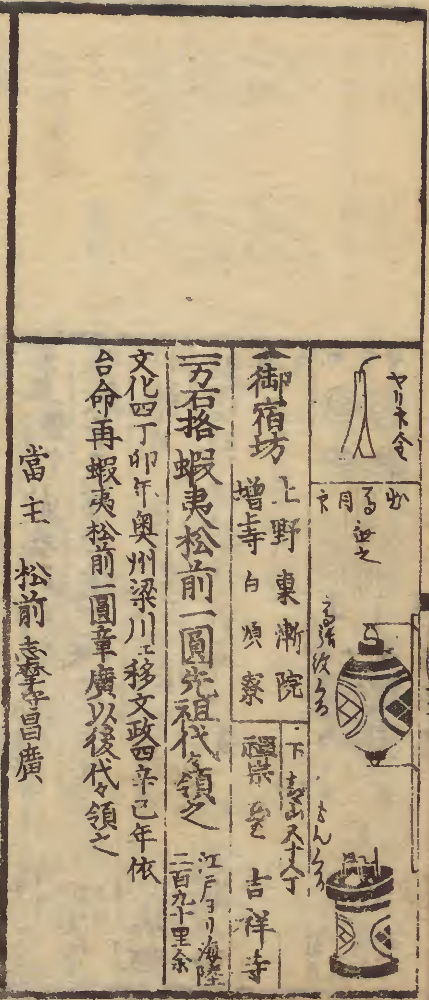 ヤリ子金
御宿坊
上野東漸院
増上寺
白須寮
禪宗
吉祥寺
一万石格蝦夷松前一圓先祖代々領之
江戸ヨリ海陸
二百九十里余
文化四丁卯年奥州梁川江移文政四辛巳年依
台命再蝦夷松前一圓章廣以後代々領之
當主 松前志摩守昌廣